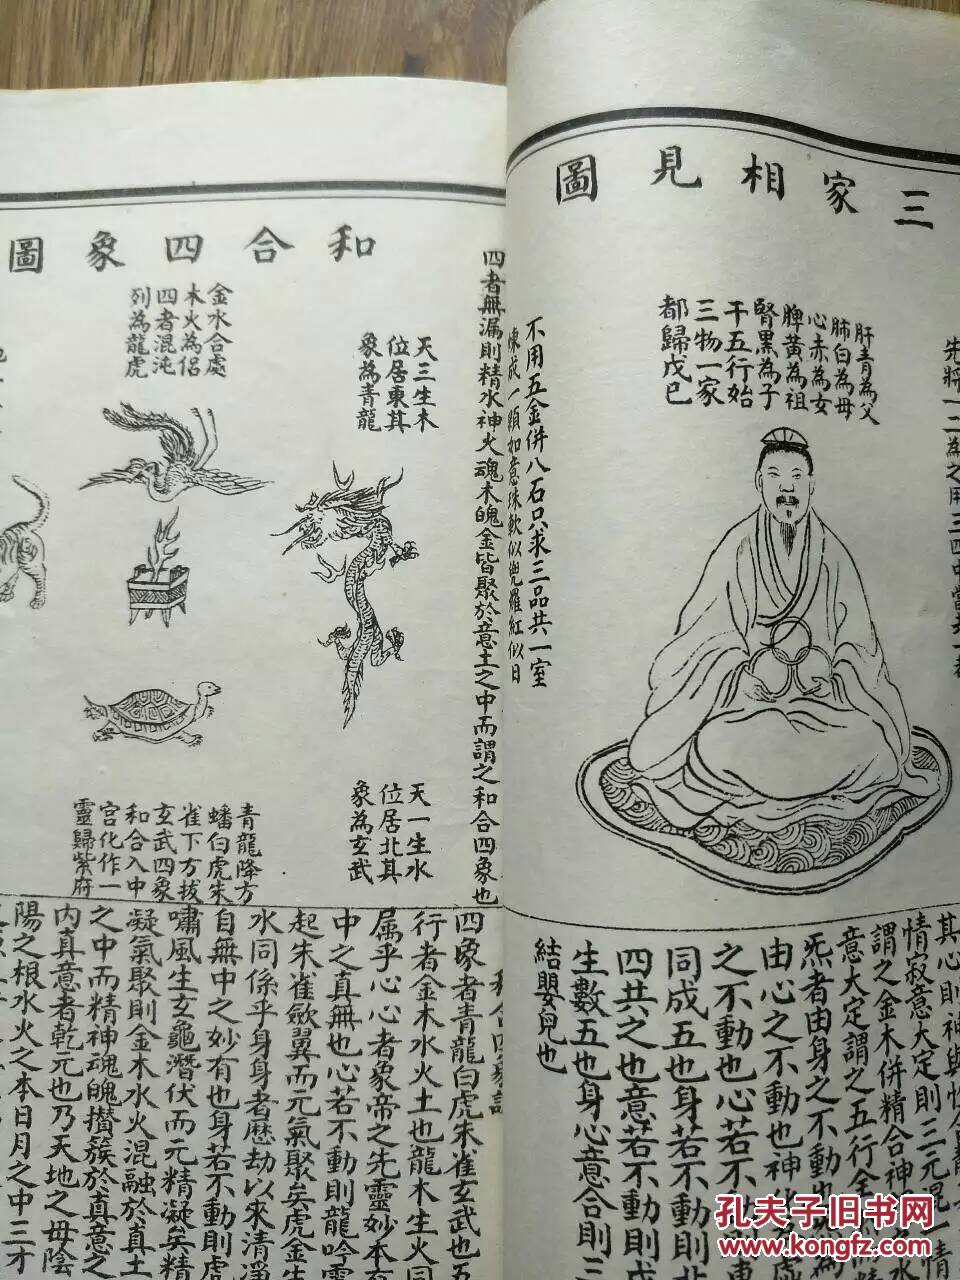 三家相見圖
先將一二為之用三四中當共一
肝青為父
肺白為母
心赤為女
脾黃為祖
腎黑為子
干五行始
三物一家
都歸戊巳
不用五金併八石只求三品共一室
煉成一顆如意珠軟似兜羅紅似日
其心則神與性
情寂意大定則三元混一情
謂之金木併精合神
意大定謂之五行全
炁者由身之不動也
由心之不動也神
之不動也心若不
同成五也身若不動則
四共之也意若不動則
生數五也身心意合則三
結嬰兒也
和合四象圖
四者無漏則精水神火魂木魄金皆聚於意土之中而謂之和合四象也
天三生木
位居東其
象為青龍
金水合處
木火為侶
四者混沌
列為龍虎
天一生水
位居北其
象為玄武
青龍降方
蟠白虎朱
雀下方拔
玄武四象
和合入中
宮化作一
靈歸紫府
和合四象說
四象者青龍白虎朱雀玄武也五
行者金木水火土也龍木生火同
属乎心心者象帝之先靈妙本有
中之真無也心若不動則龍吟雲
起朱雀歛翼而元氣聚矣虎金生
水同係乎身身者歷劫以來清淨
自無中之妙有也身若不動則虎
嘯風生玄龜潛伏而元精凝矣精
凝氣聚則金木水火混融於真土
之中而精神魂魄攢簇於真意之
內真意者乾元也乃天地之母陰
陽之根水火之本日月之中三才
孔夫子旧书网
www.kongfz.com